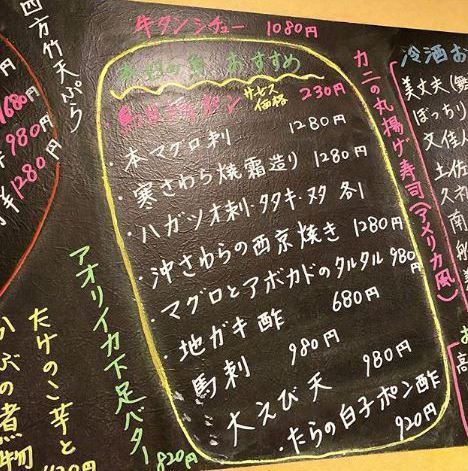 四方竹天ぷら
1680円
980円
1280円
牛タンシチュー 1080円
おすすめ
サービス価格
230円
・本マグロ刺 1280円
・寒さわら焼霜造り 1280円
・ハガツオ刺・タタキ・ヌタ 各1
・沖さわらの西京焼き 1280円
・マグロとアボカドのタルタル 980円
・地ガキ酢 680円
・馬刺 980円
・大えび天 980円
・たらの白子ポン酢 920円
カニの丸揚げ寿司(アメリカ風)
冷酒お
美丈夫(舞
ぼっちり
文佳人
土佐
久礼
南
船
お
高
アオリイカ下足バター 820円
たけのこ芋と
かぶの煮物